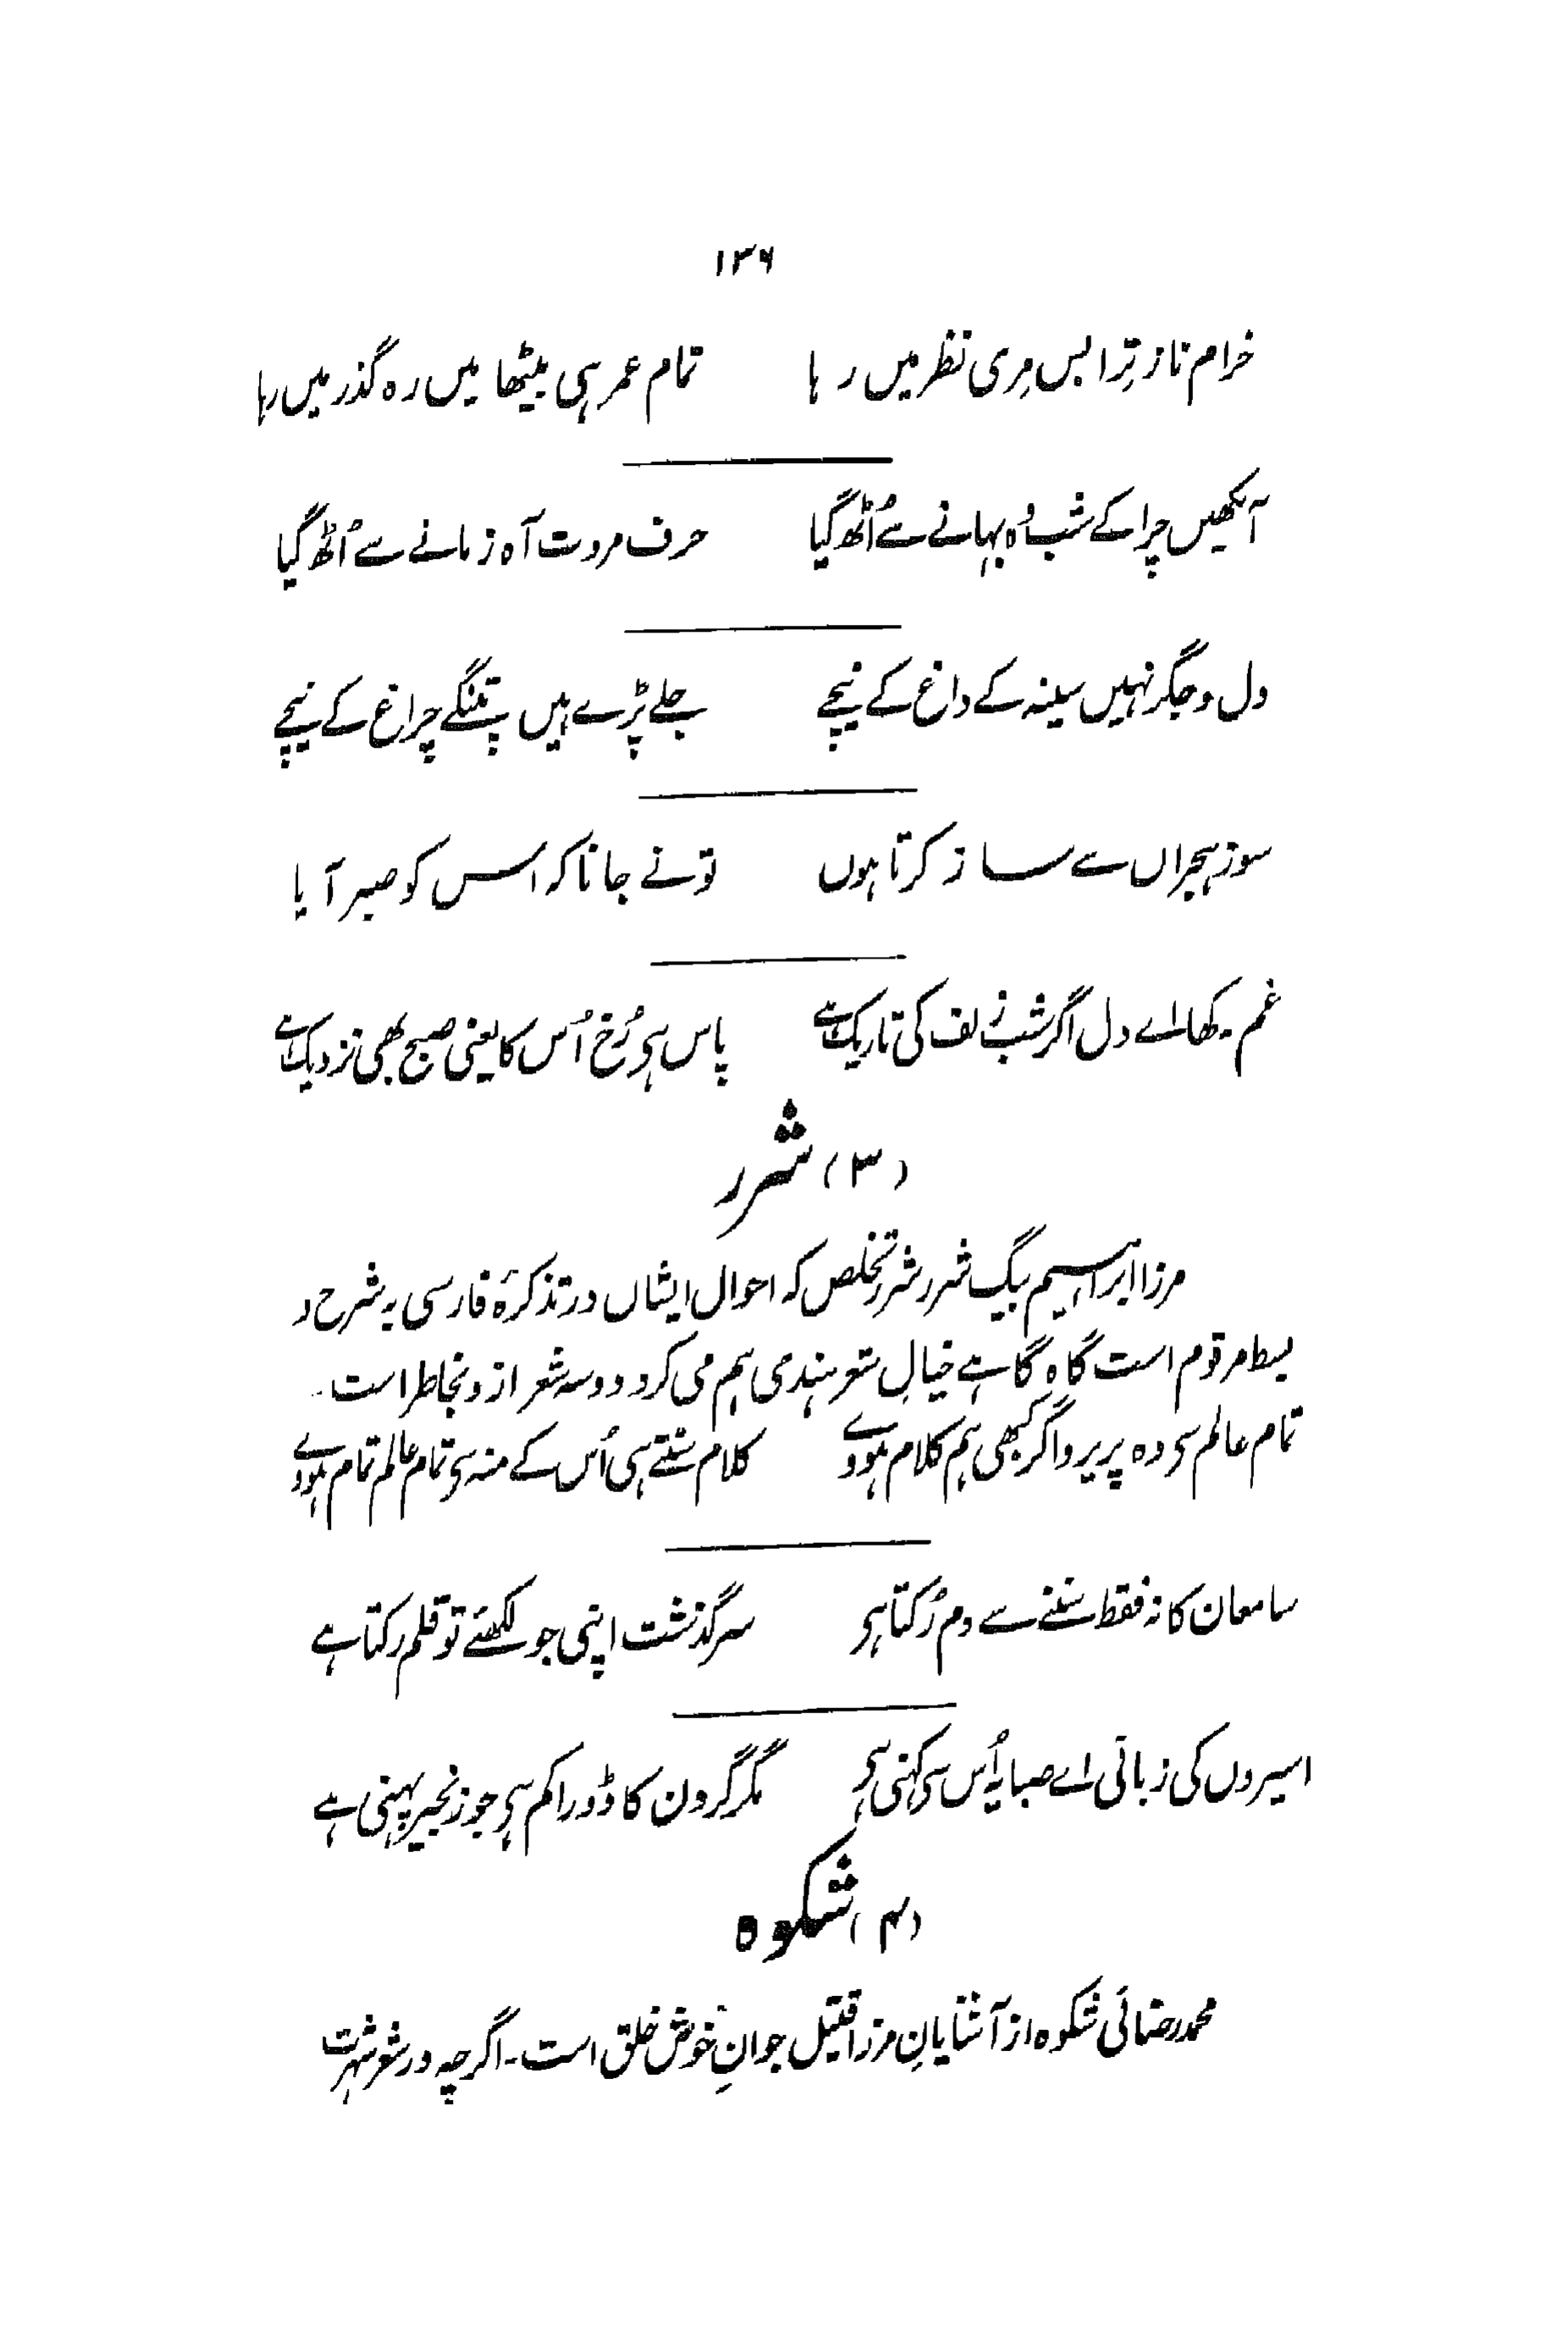 ۱۳۶
خرام ناز تِرا بس مِری نظر میں رہا تمام عمر ہی بیٹھا میں رہ گذر میں رہا
آنکھیں چرا کے شب وُہ بہانے سے اُٹھ گیا حرف مروت آہ زمانے سے اُٹھ گیا
دل و جگر نہیں سینہ کے داغ کے نیچے جلے پڑے ہیں پتنگے چراغ کے نیچے
سوز ہجراں سے ساز کرتا ہوں تو نے جانا کہ اس کو صبر آیا
غم نہ کھا اے دل اگر شب زلف کی تاریک ہے پاس ہی رُخ اُس کا یعنی صبح بھی نزدیک ہے
(۳) شرر
مرزا ابراہیم بیگ شرر شرر تخلص کہ احوال ایشاں در تذکرۂ فارسی بہ شرح و
بسط مرقوم است گاہِ گاہے خیالِ شعر ہندی ہم می کرد دو سہ شعر از و بخاطر است۔
تمام عالم سی وہ پریرو اگر کبھی ہم کلام ہووے کلام سنتے ہی اُس کے منہ سی تمام عالم تمام ہووے
سامعان کا نہ فقط سننے سے دم رُکتا ہی سرگذشت اپنی جو لکھئے تو قلم رکتا ہے
اسیروں کی زبانی اے صبا یہ اُس سی کہنی ہی مگر گردن کا ڈورا کم ہی جو زنجیر پہنی ہے
(۴) شکوہ
محمد رضائی شکوہ از آشنایانِ مرزا قتیل جوانِ خوش خلق است۔ اگرچہ در شعر شہرت